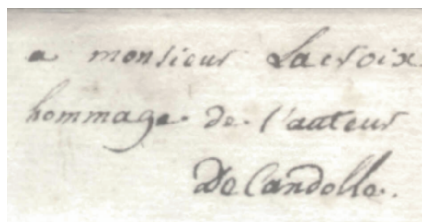 a monsieur Lacroix
hommage de l'auteur
DeCandolle.